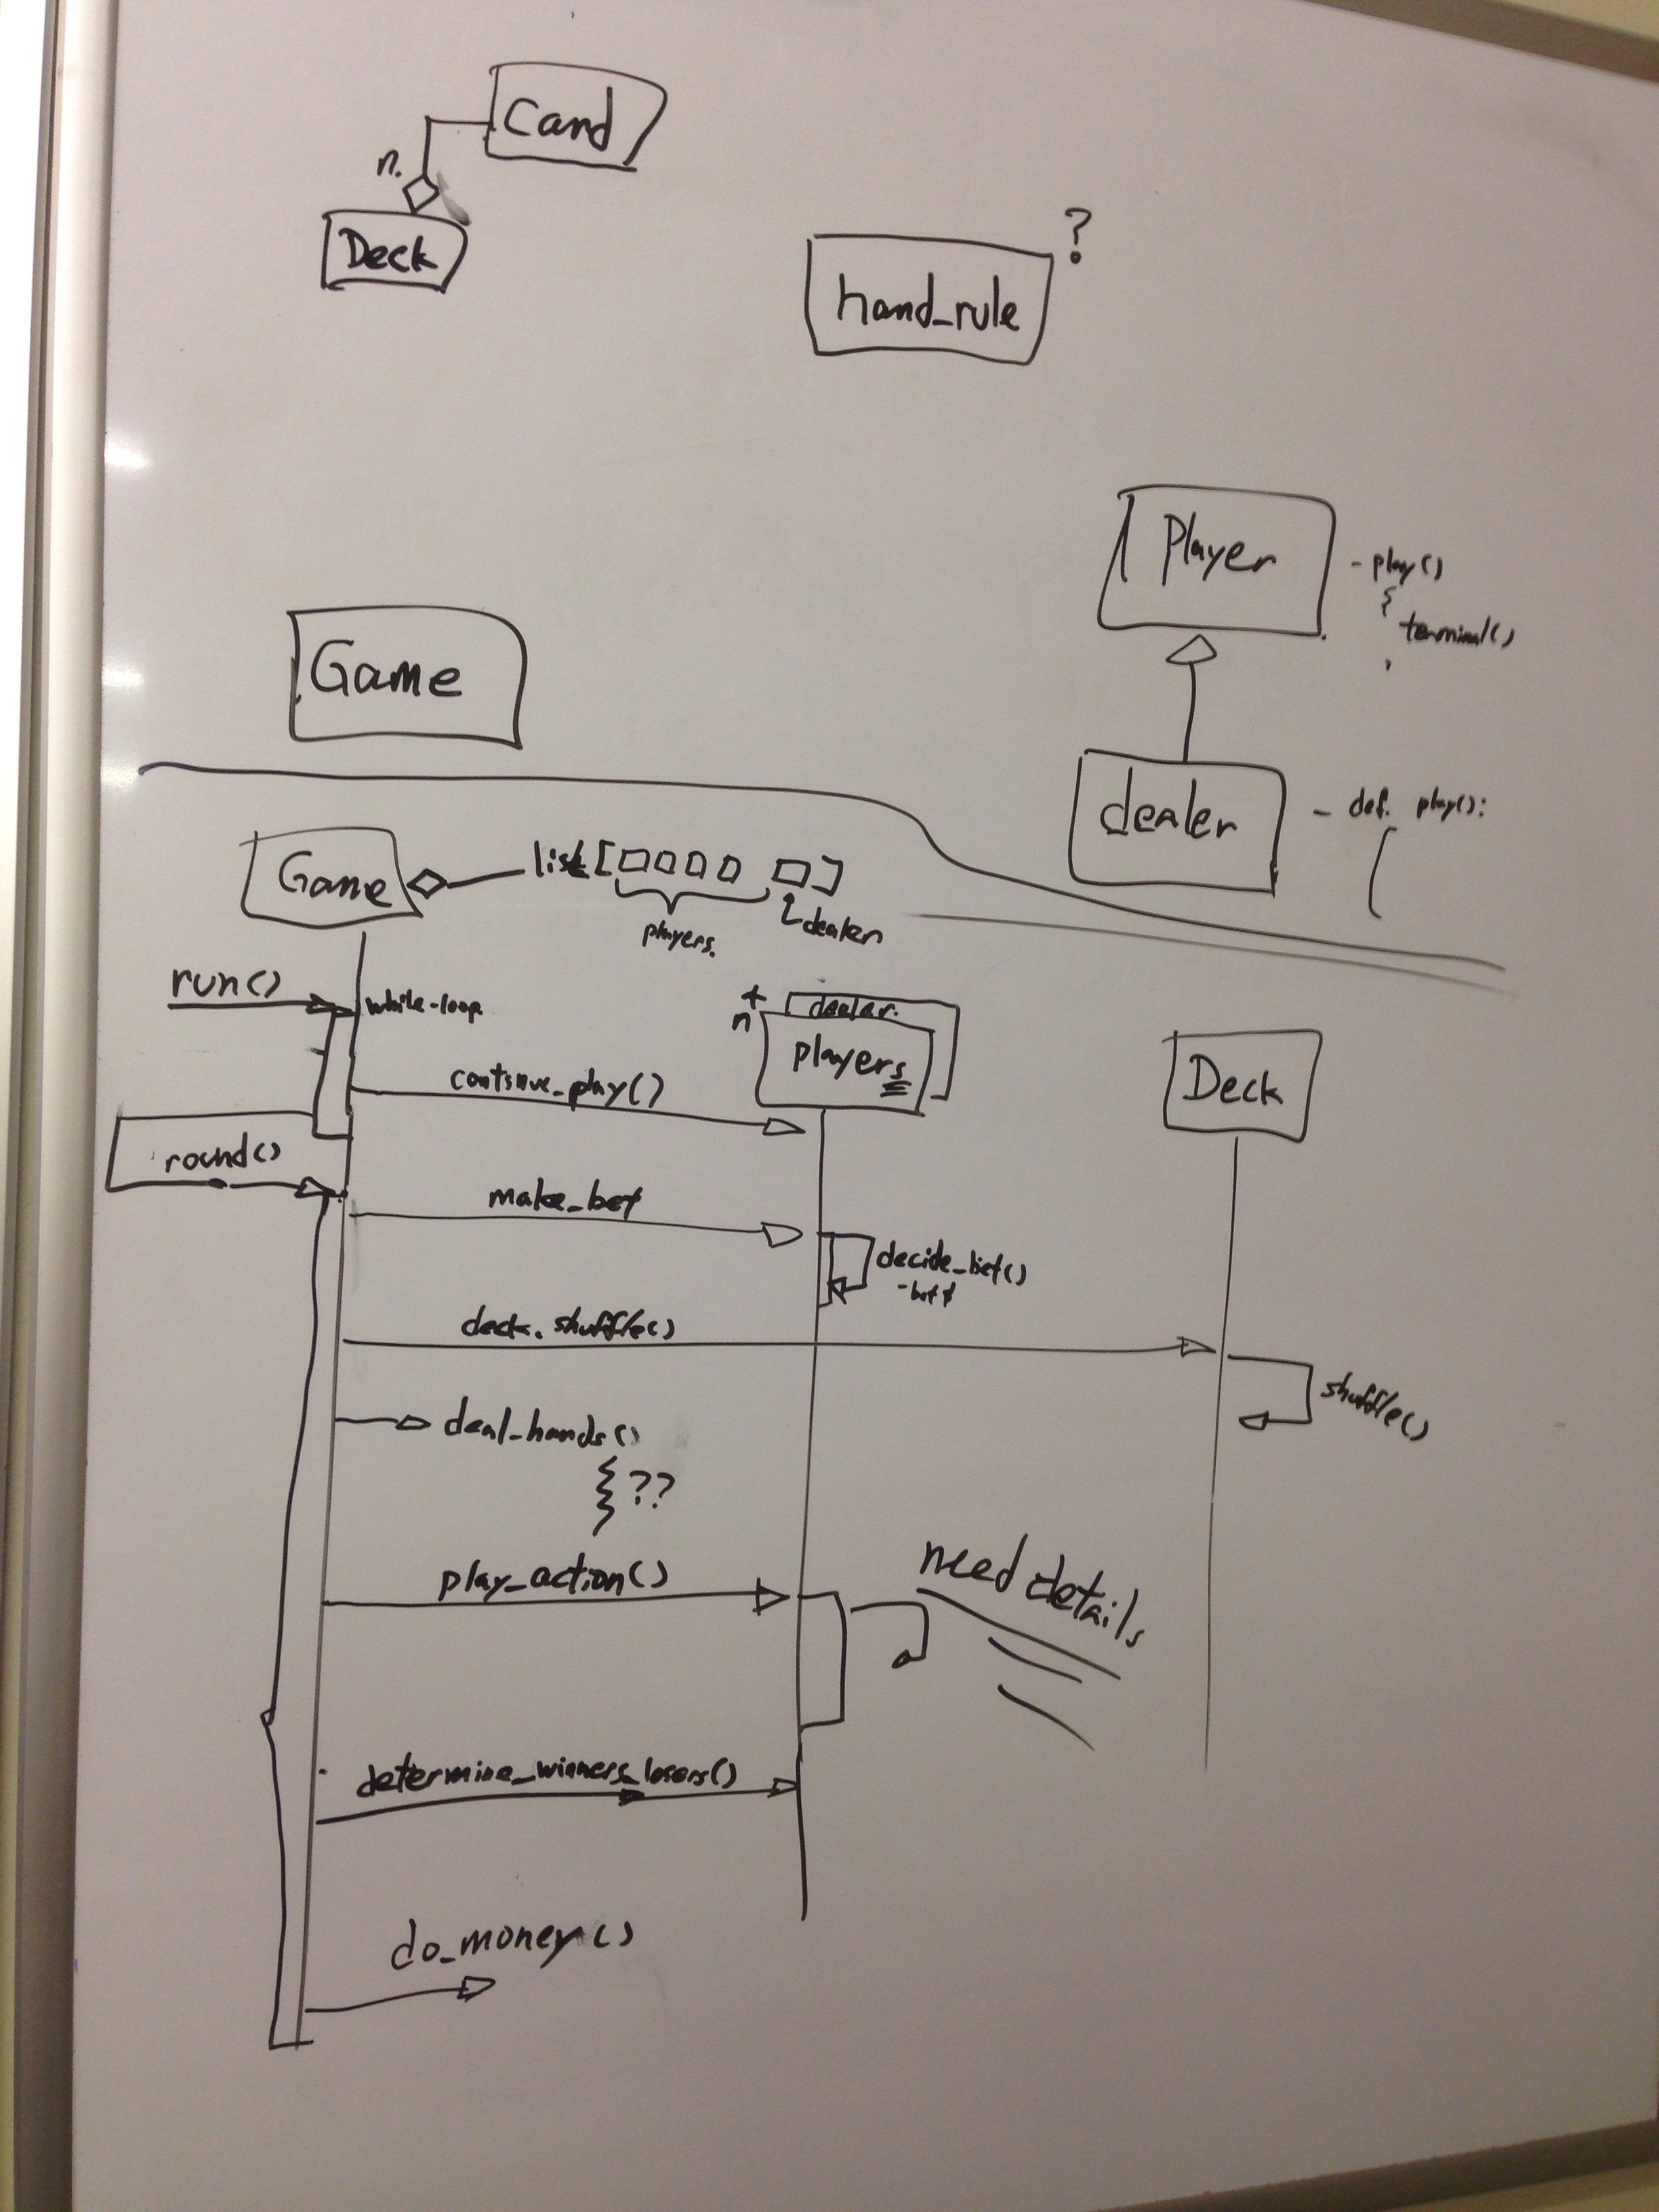 Card
n.
Deck
?
hand_rule
Player
- play()
{
terminal()
Game
dealer
- def. play():
Game
list [ ]
players.
dealer
run()
while-loop
+
n
dealer.
players
Deck
continue_play()
round()
make_bet
decide_bet()
deck.shuffle()
shuffle()
deal_hands()
??
play_action()
need details
determine_winners_losers()
do_money()